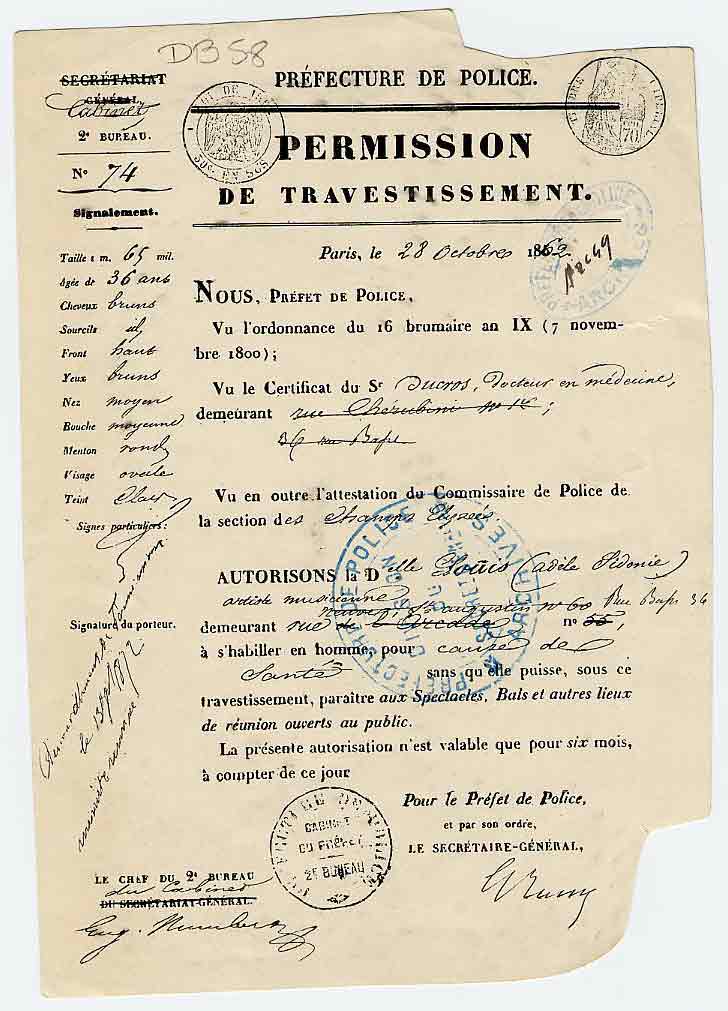 DB 58
PRÉFECTURE DE POLICE.
PERMISSION
DE TRAVESTISSEMENT.
SECRÉTARIAT
GÉNÉRAL,
Cabinet
2e BUREAU.
No 74
Signalement.
Taille 1 m. 65 mil.
Agée de 36 ans
Cheveux bruns
Sourcils id
Front haut
Yeux bruns
Nez moyen
Bouche moyenne
Menton rond
Visage ovale
Teint clair
Signes particuliers:
Signature du porteur.
le 13
1872
50c. EN SUS
Paris, le 28 Octobre 1862
NOUS, PRÉFET DE POLICE,
Vu l'ordonnance du 16 brumaire an IX (7 novem-
bre 1800);
Vu le Certificat du Sr Ducros, docteur en médecine,
demeurant rue Chérubini no ;
36
Vu en outre l'attestation du Commissaire de Police de
la section des Champs Elysées
AUTORISONS la Delle Louis (adèle Sidonie)
artiste musicienne
neuve St augustin no 60 Rue 36
demeurant rue de no 55,
à s'habiller en homme, pour cause de
Santé sans qu'elle puisse, sous ce
travestissement, paraître aux Spectacles, Bals et autres lieux
de réunion ouverts au public.
La présente autorisation n'est valable que pour six mois,
à compter de ce jour
PRÉFECTURE DE POLICE
ARCHIVES
PRÉFECTURE DE POLICE
CABINET
DU PRÉFET
2E BUREAU
Pour le Préfet de Police,
et par son ordre,
LE SECRÉTAIRE-GÉNÉRAL,
LE CHEF DU 2e BUREAU
du Cabinet
DU SECRÉTARIAT-GÉNÉRAL.
Eug.